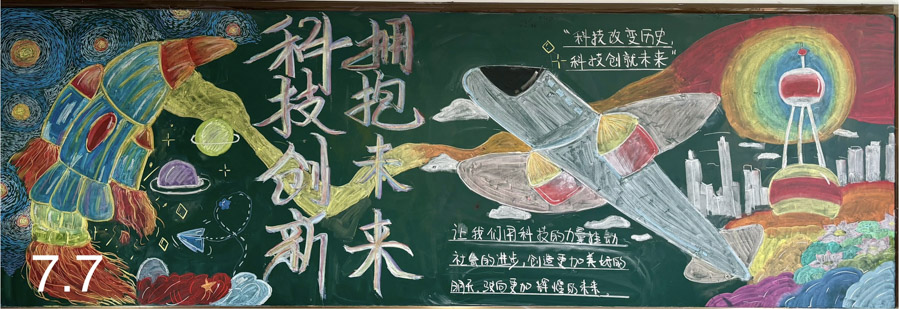 科技创新
拥抱未来
“科技改变历史,
科技创就未来”
让我们用科技的力量推动
社会的进步,创造更加美好的
明天,驶向更加辉煌的未来.
7.7